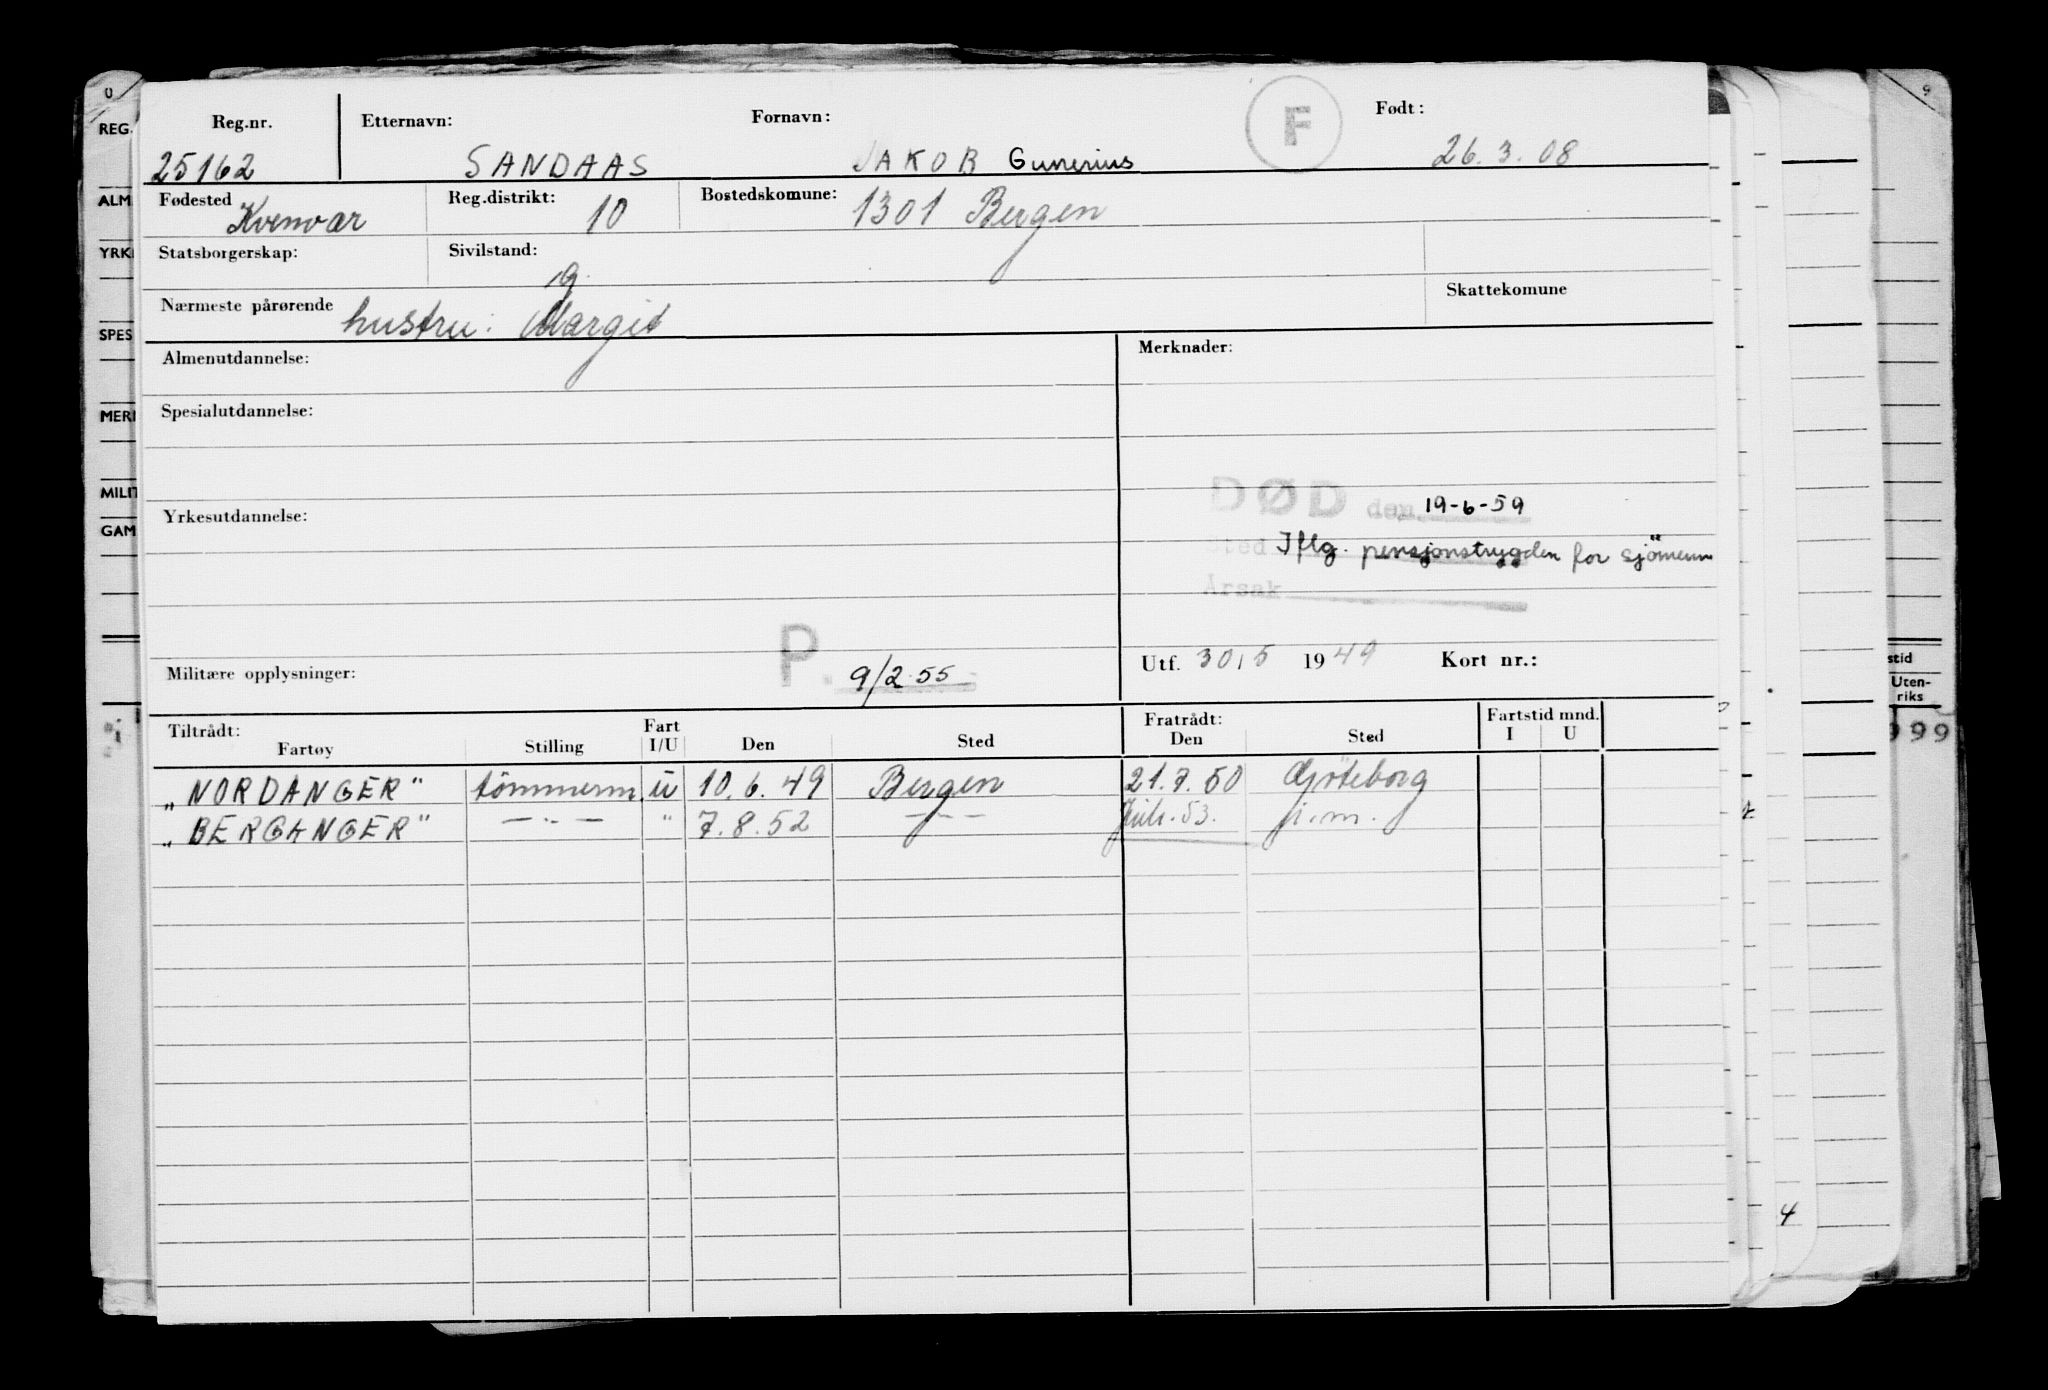 Reg.nr. Etternavn: Fornavn: F Født:
25162 SANDAAS JAKOB Gunerius 26.3.08
Fødested Kvenvær Reg.distrikt: 10 Bostedskomune: 1301 Bergen
Statsborgerskap: Sivilstand: g.
Nærmeste pårørende hustru: Margit Skattekomune
Almenutdannelse: Merknader:
Spesialutdannelse:
DØD den 19-6-59
Yrkesutdannelse:
Sted Iflg. pensjonstrygden for sjömenn
Årsak
P. 9/2-55
Militære opplysninger: Utf. 30/5 1949 Kort nr.:
Tiltrådt: Fart Fratrådt: Fartstid mnd.
Fartøy Stilling I/U Den Sted Den Sted I U
"NORDANGER" tömmerm. u 10.6.49 Bergen 21.7.50 Gjöteborg
"BERGANGER" — " — " 7.8.52 — " — juli.53. p.m.
REG.
ALM
YRK
SPES
MERI
MILIT
GAM
stid
Uten-
riks
999
4
9
0